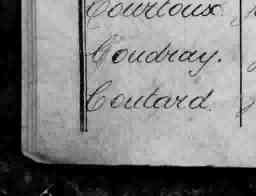 Courtoux
Coudray.
Coutard